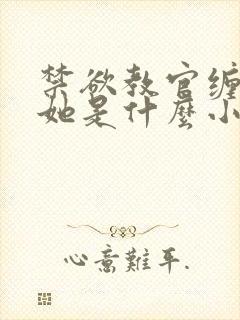 禁欲教官缠
她是什麼小
心意難平.